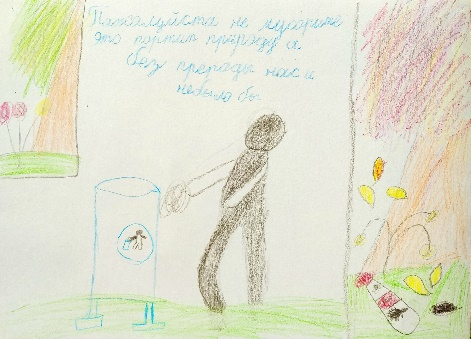 Пажалуйста не мусарите
это партит природу а
без природы нас и
небыло бы